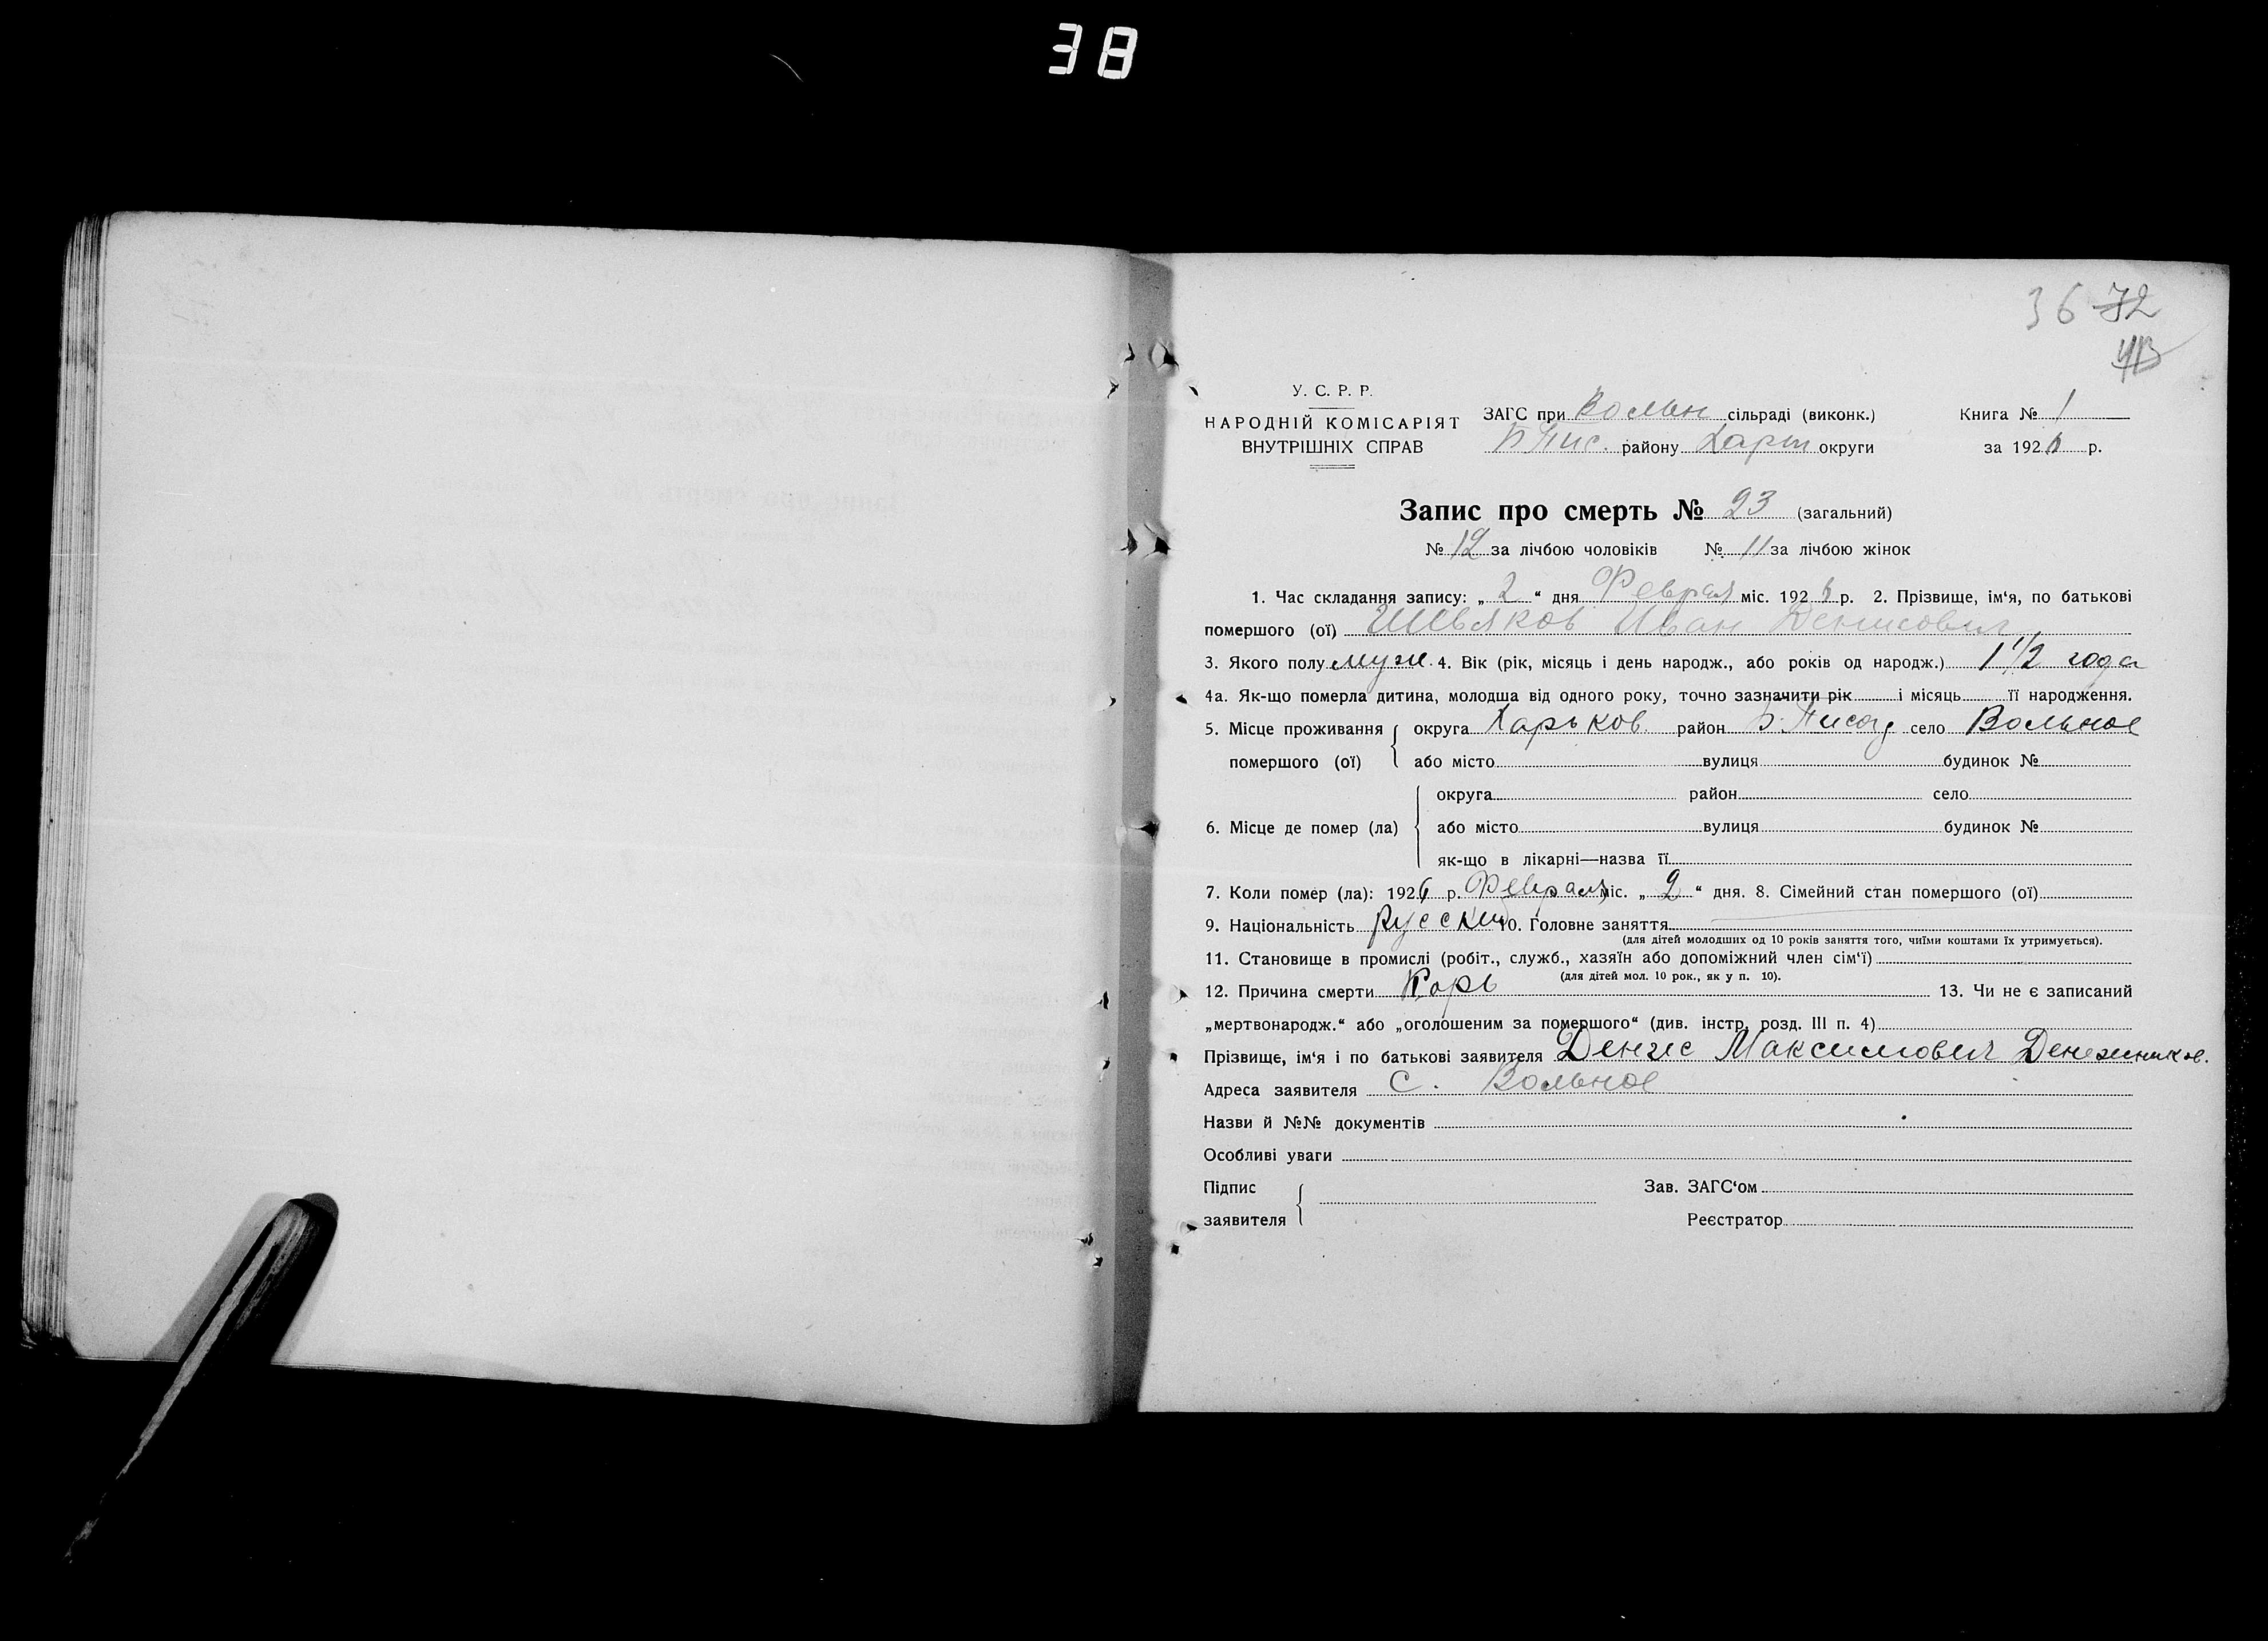 38
36 72
У. С. Р. Р.
НАРОДНІЙ КОМІСАРІЯТ
ВНУТРІШНІХ СПРАВ
ЗАГС при Вольн сільраді (виконк.)
Б Пис. району Харт округи
Книга № 1
за 1926 р.
Запис про смерть № 23 (загальний)
№ 12 за лічбою чоловіків № 11 за лічбою жінок
1. Час складання запису: „ 2 “ дня Февраля міс. 1926 р. 2. Прізвище, ім‘я, по батькові
помершого (ої) Шевяков Иван Денисович
3. Якого полу муж. 4. Вік (рік, місяць і день народж., або років од народж.) 1 1/2 года
4а. Як-що померла дитина, молодша від одного року, точно зазначити рік і місяць її народження.
5. Місце проживання помершого (ої) округа Харьков. район Б. Писар село Вольное
або місто вулиця будинок №
6. Місце де помер (ла) округа район село
або місто вулиця будинок №
як-що в лікарні—назва її
7. Коли помер (ла): 1926 р. Февраля міс. „ 2 “ дня. 8. Сімейний стан помершого (ої)
9. Національність Русский 10. Головне заняття
(для дітей молодших од 10 років заняття того, чиїми коштами їх утримується).
11. Становище в промислі (робіт., служб., хазяїн або допоміжний член сім‘ї)
(для дітей мол. 10 рок., як у п. 10).
12. Причина смерти Корь 13. Чи не є записаний
„мертвонародж.“ або „оголошеним за помершого“ (див. інстр. розд. III п. 4)
Прізвище, ім‘я і по батькові заявителя Денис Максимович
Адреса заявителя с. Вольное
Назви й №№ документів
Особливі уваги
Підпис заявителя
Зав. ЗАГС‘ом
Реєстратор